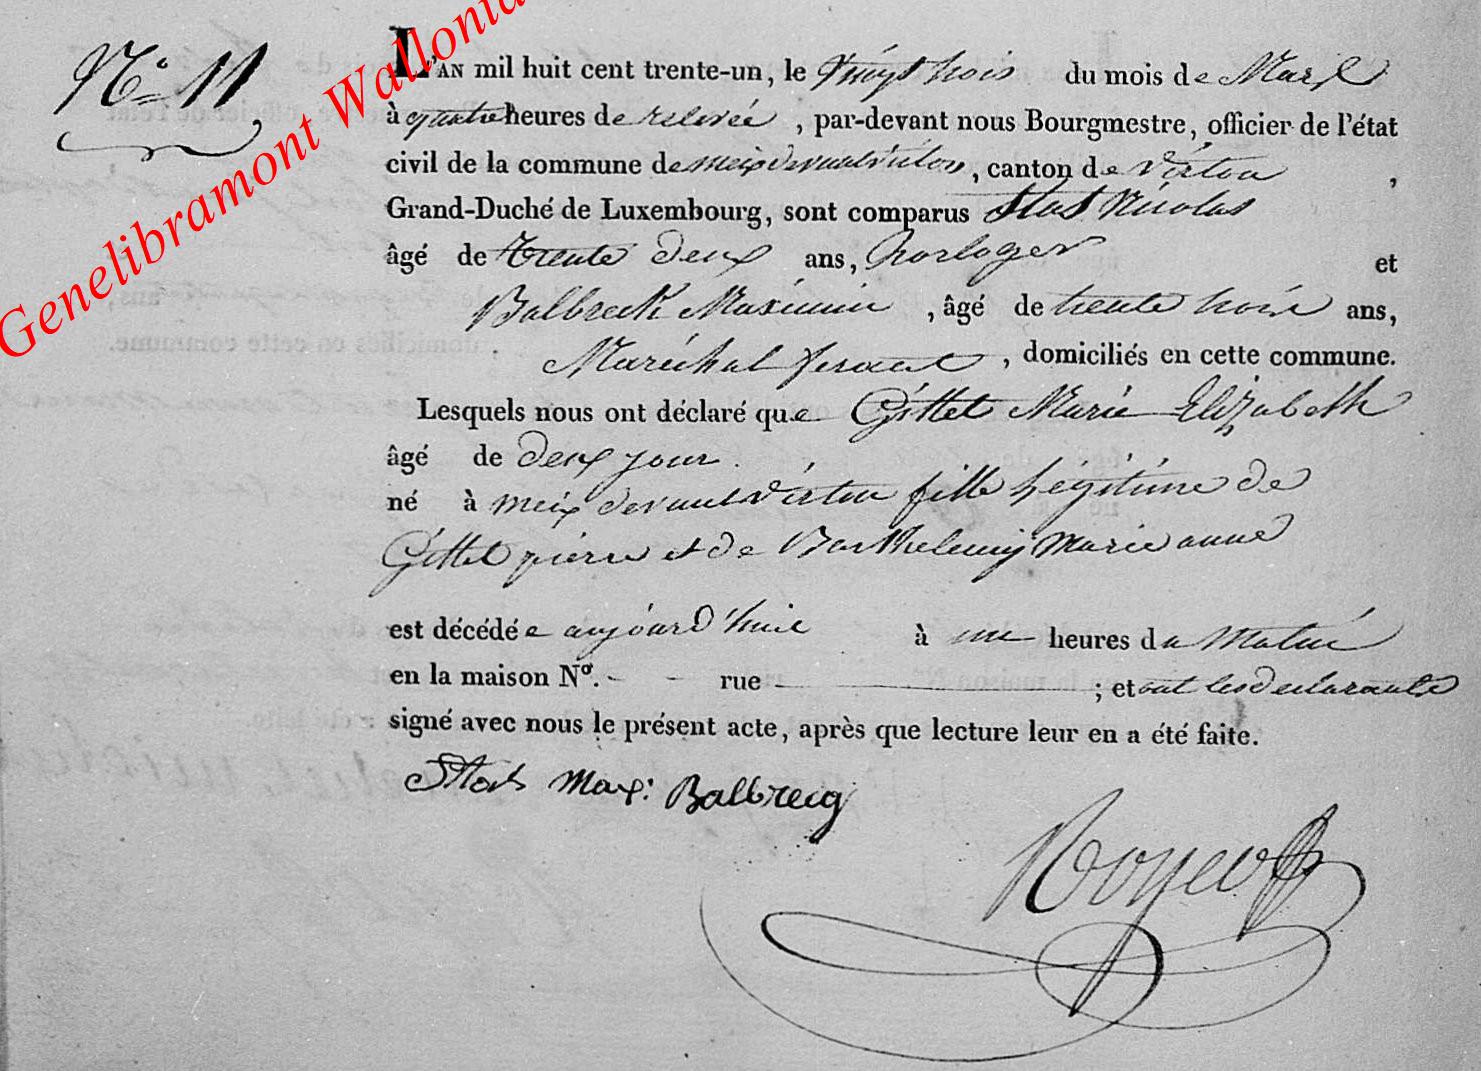 Genelibramont Wallonia
No 11
L'AN mil huit cent trente-un, le vingt trois du mois de Mars
à quatre heures de relevée, par-devant nous Bourgmestre, officier de l'état
civil de la commune de meix devant virton, canton de virton,
Grand-Duché de Luxembourg, sont comparus Stas Nicolas
âgé de trente deux ans, horloger et
Balbreck Maximin, âgé de trente trois ans,
Maréchal ferant, domiciliés en cette commune.
Lesquels nous ont déclaré que Gittet Marie Elizabeth
âgé de deux jour.
né à meix devant virton fille légitime de
Gittet pierre et de Barthelemy marie anne
est décédée aujourd'huie à une heures du Matin
en la maison No. - - rue - ; et ont les declarants
signé avec nous le présent acte, après que lecture leur en a été faite.
Stas Max: Balbrecq
Royer